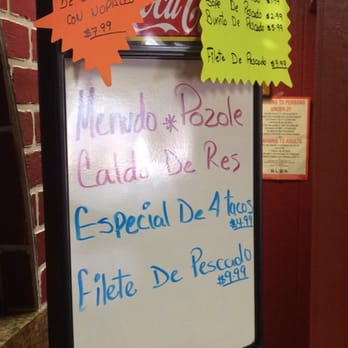 CON NOPALES
$7.99
Coca C
De Pescado
Burrito De Pescado $5.99
Filete De Pescado $9.99
Menudo * Pozole
Caldo De Res
Especial De 4 tacos
$4.99
Filete De Pescado
$9.99